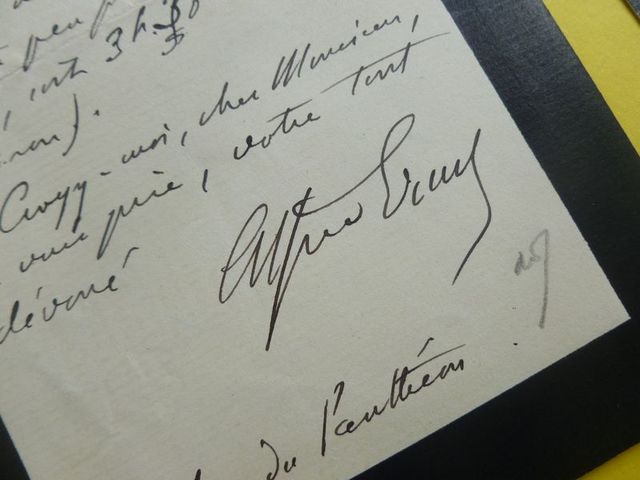 peu
, soit 3 h. 30
).
Croyez-moi, cher Monsieur,
vous prie, votre tout
dévoué
Alfred
du Panthéon